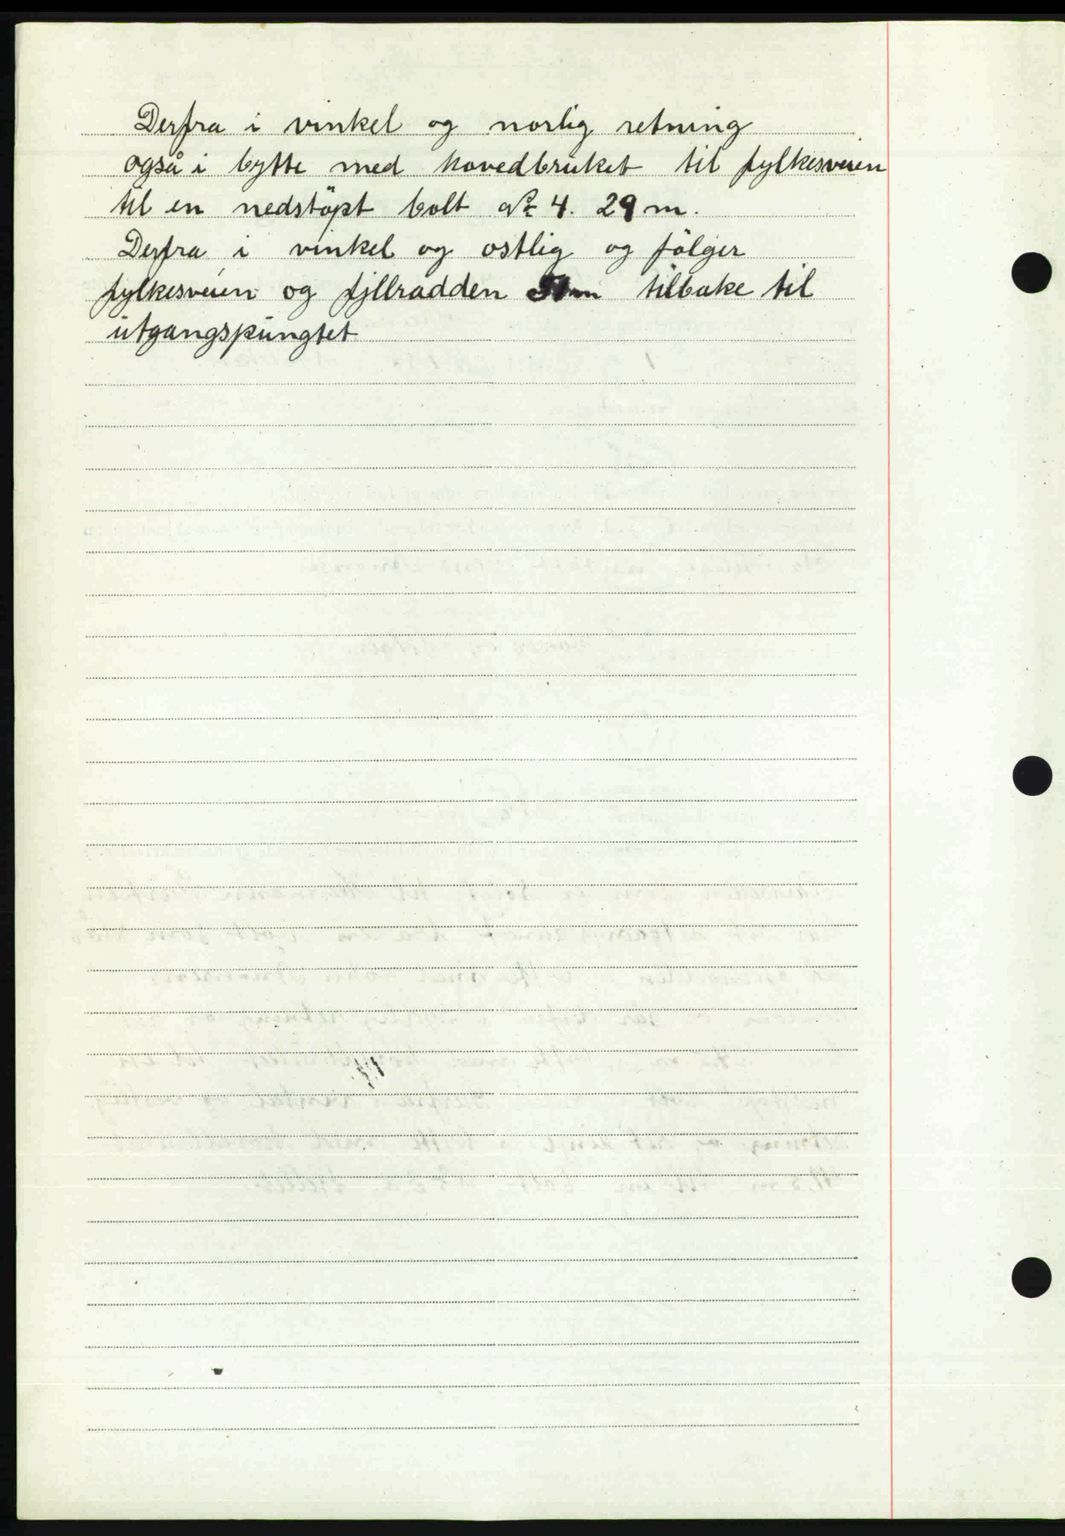 Derfra i vinkel og norlig retning
også i bytte med hovedbruket til fylkesveien
til en nedstöpt bolt № 4. 29 m.
Derfra i vinkel og ostlig og fölger
fylkesveien og fjellradden 51 m tilbake til
utgangspungtet